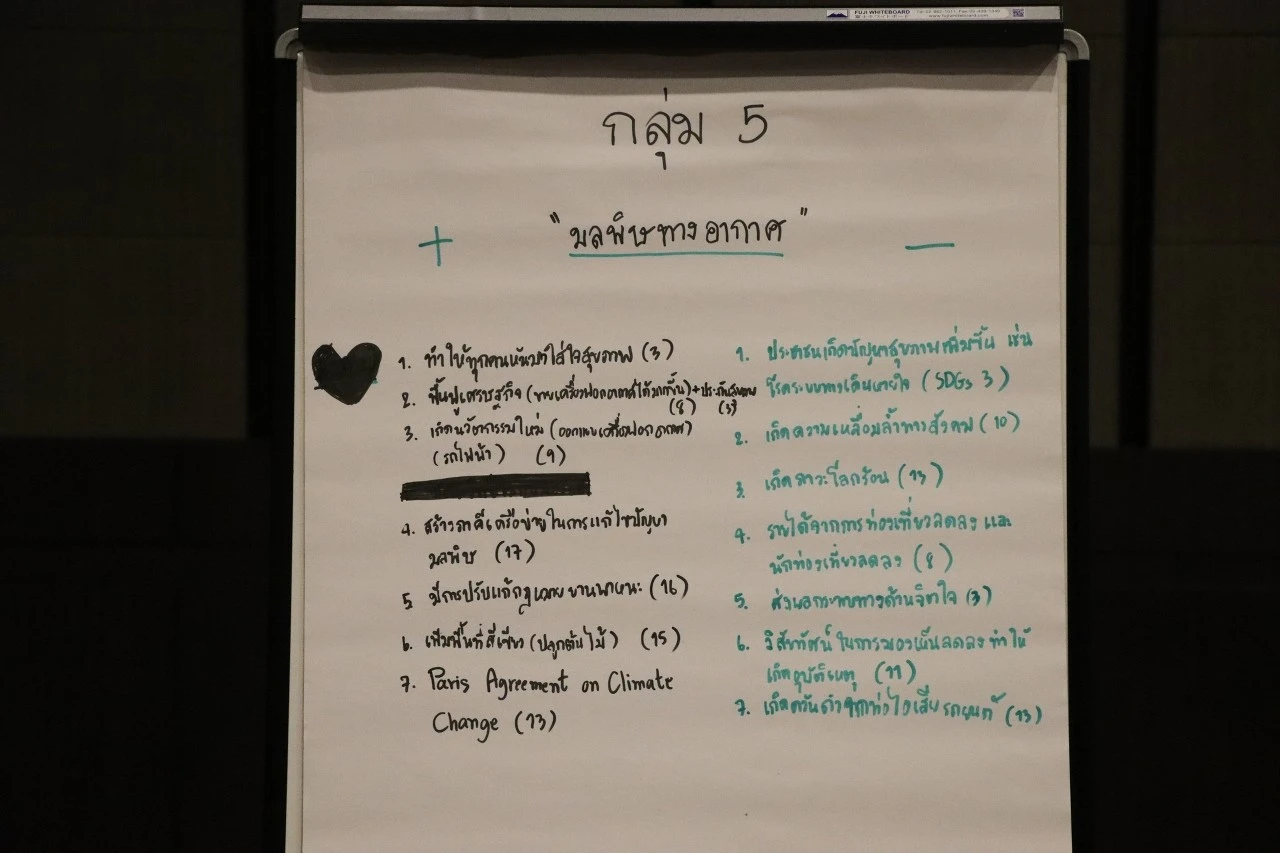 FUJI WHITEBOARD
กลุ่ม 5
"มลพิษทางอากาศ"
+
—
1. ทำให้ทุกคนหันมาใส่ใจสุขภาพ (3)
2. ฟื้นฟูเศรษฐกิจ (ขายเครื่องฟอกอากาศได้มากขึ้น) + ประกันสุขภาพ
(8) (3)
3. เกิดนวัตกรรมใหม่ (ออกแบบเครื่องฟอกอากาศ)
(รถไฟฟ้า) (9)
4. สร้างภาคีเครือข่ายในการแก้ไขปัญหา
มลพิษ (17)
5. มีการปรับแก้กฎหมายยานพาหนะ (16)
6. เพิ่มพื้นที่สีเขียว (ปลูกต้นไม้) (15)
7. Paris Agreement on Climate
Change (13)
1. ประชาชนเกิดปัญหาสุขภาพเพิ่มขึ้น เช่น
โรคระบบทางเดินหายใจ (SDGs 3)
2. เกิดความเหลื่อมล้ำทางสังคม (10)
3. เกิดภาวะโลกร้อน (13)
4. รายได้จากการท่องเที่ยวลดลง และ
นักท่องเที่ยวลดลง (8)
5. ส่งผลกระทบทางด้านจิตใจ (3)
6. วิสัยทัศน์ในการมองเห็นลดลงทำให้
เกิดอุบัติเหตุ (11)
7. เกิดควันดำจากท่อไอเสียรถยนต์ (13)